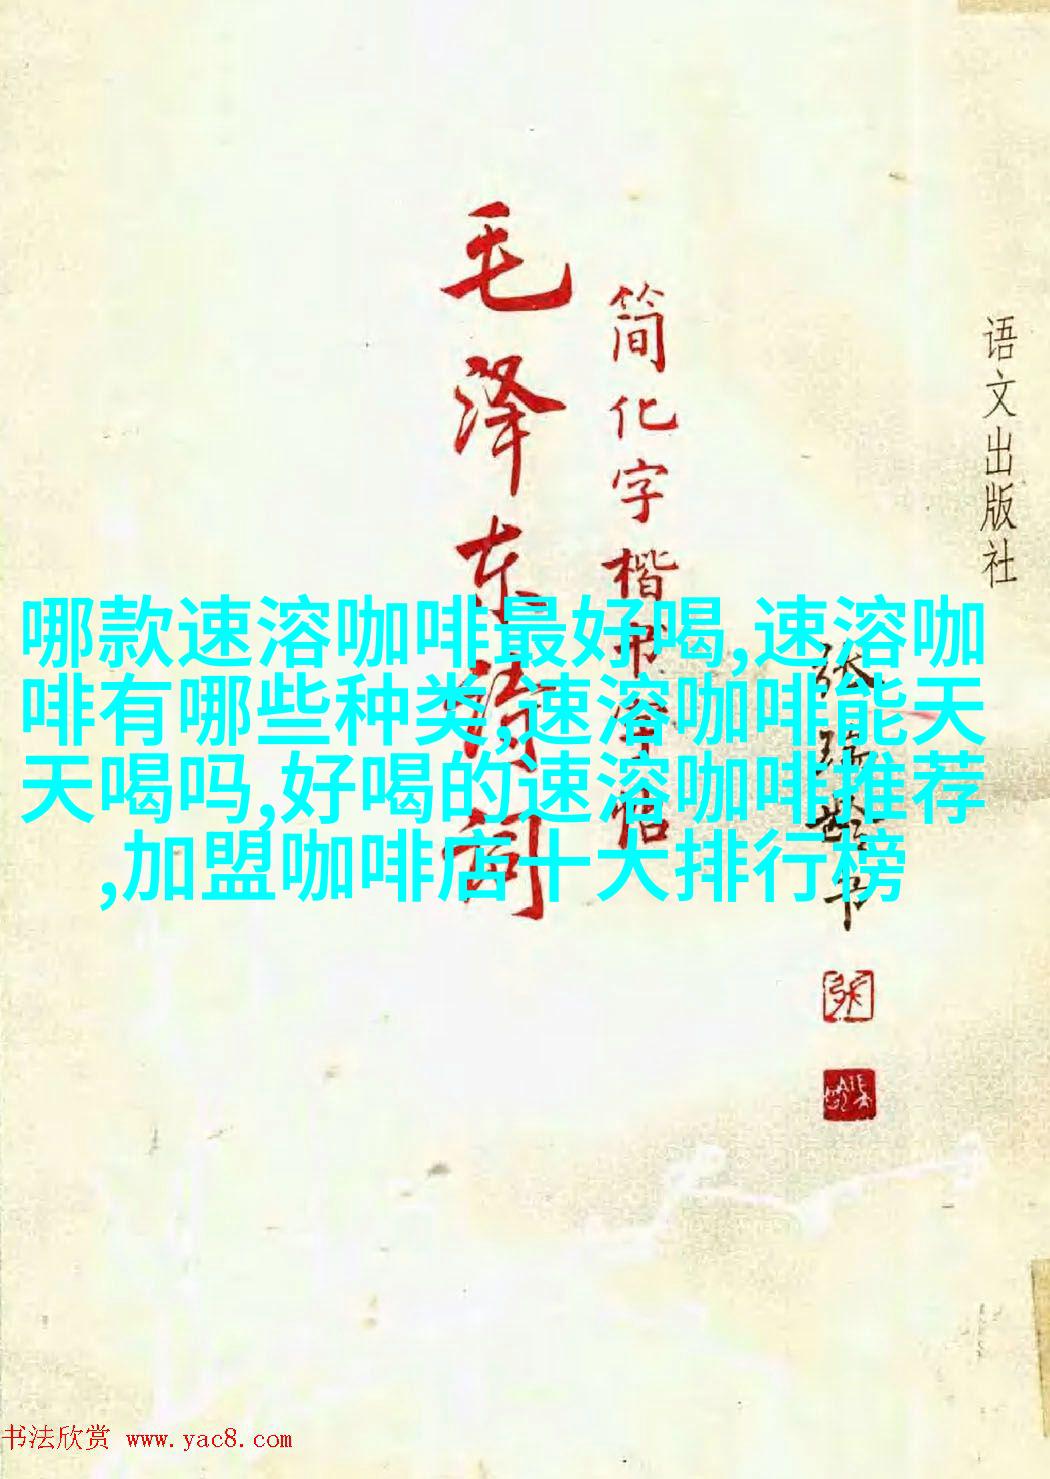 毛泽东诗词
简化字楷书字帖
张瑞龄书
语文出版社
哪款速溶咖啡最好喝,速溶咖
啡有哪些种类,速溶咖啡能天
天喝吗,好喝的速溶咖啡推荐
,加盟咖啡店十大排行榜
书法欣赏 www.yac8.com